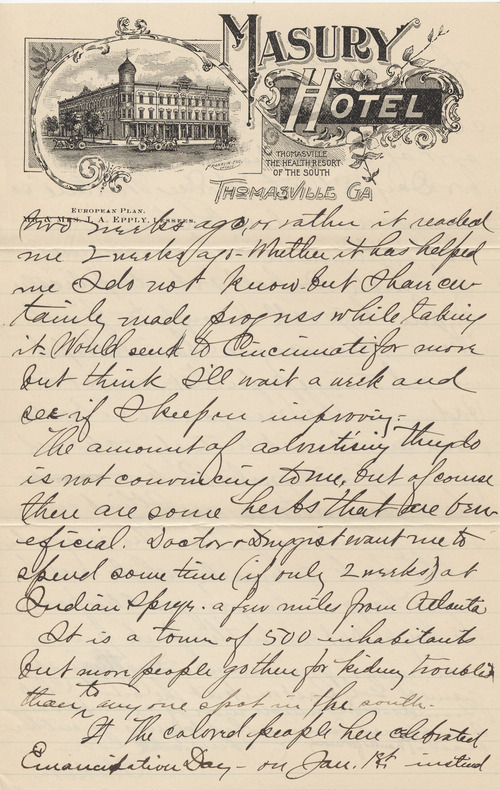 MASURY
HOTEL
THOMASVILLE
THE HEALTH RESORT
OF THE SOUTH
THOMASVILLE GA
EUROPEAN PLAN.
MR. & MRS. J. A. EPPLY, LESSEES.
two weeks ago, or rather it reached
me 2 weeks ago - Whether it has helped
me I do not know but I have cer
tainly made progress while taking
it. Would send to Cincinnati for more
but think I'll wait a week and
see if I keep on improving -
The amount of advertising they do
is not convincing to me, but of course
there are some herbs that are ben
eficial. Doctor & Druggist want me to
spend some time (if only 2 weeks) at
Indian Spngs. a few miles from Atlanta
It is a town of 500 inhabitants
but more people go there for kidney trouble
than to any one spot in the south.
The colored people here celebrated
Emancipation Day - on Jan. 1st instead